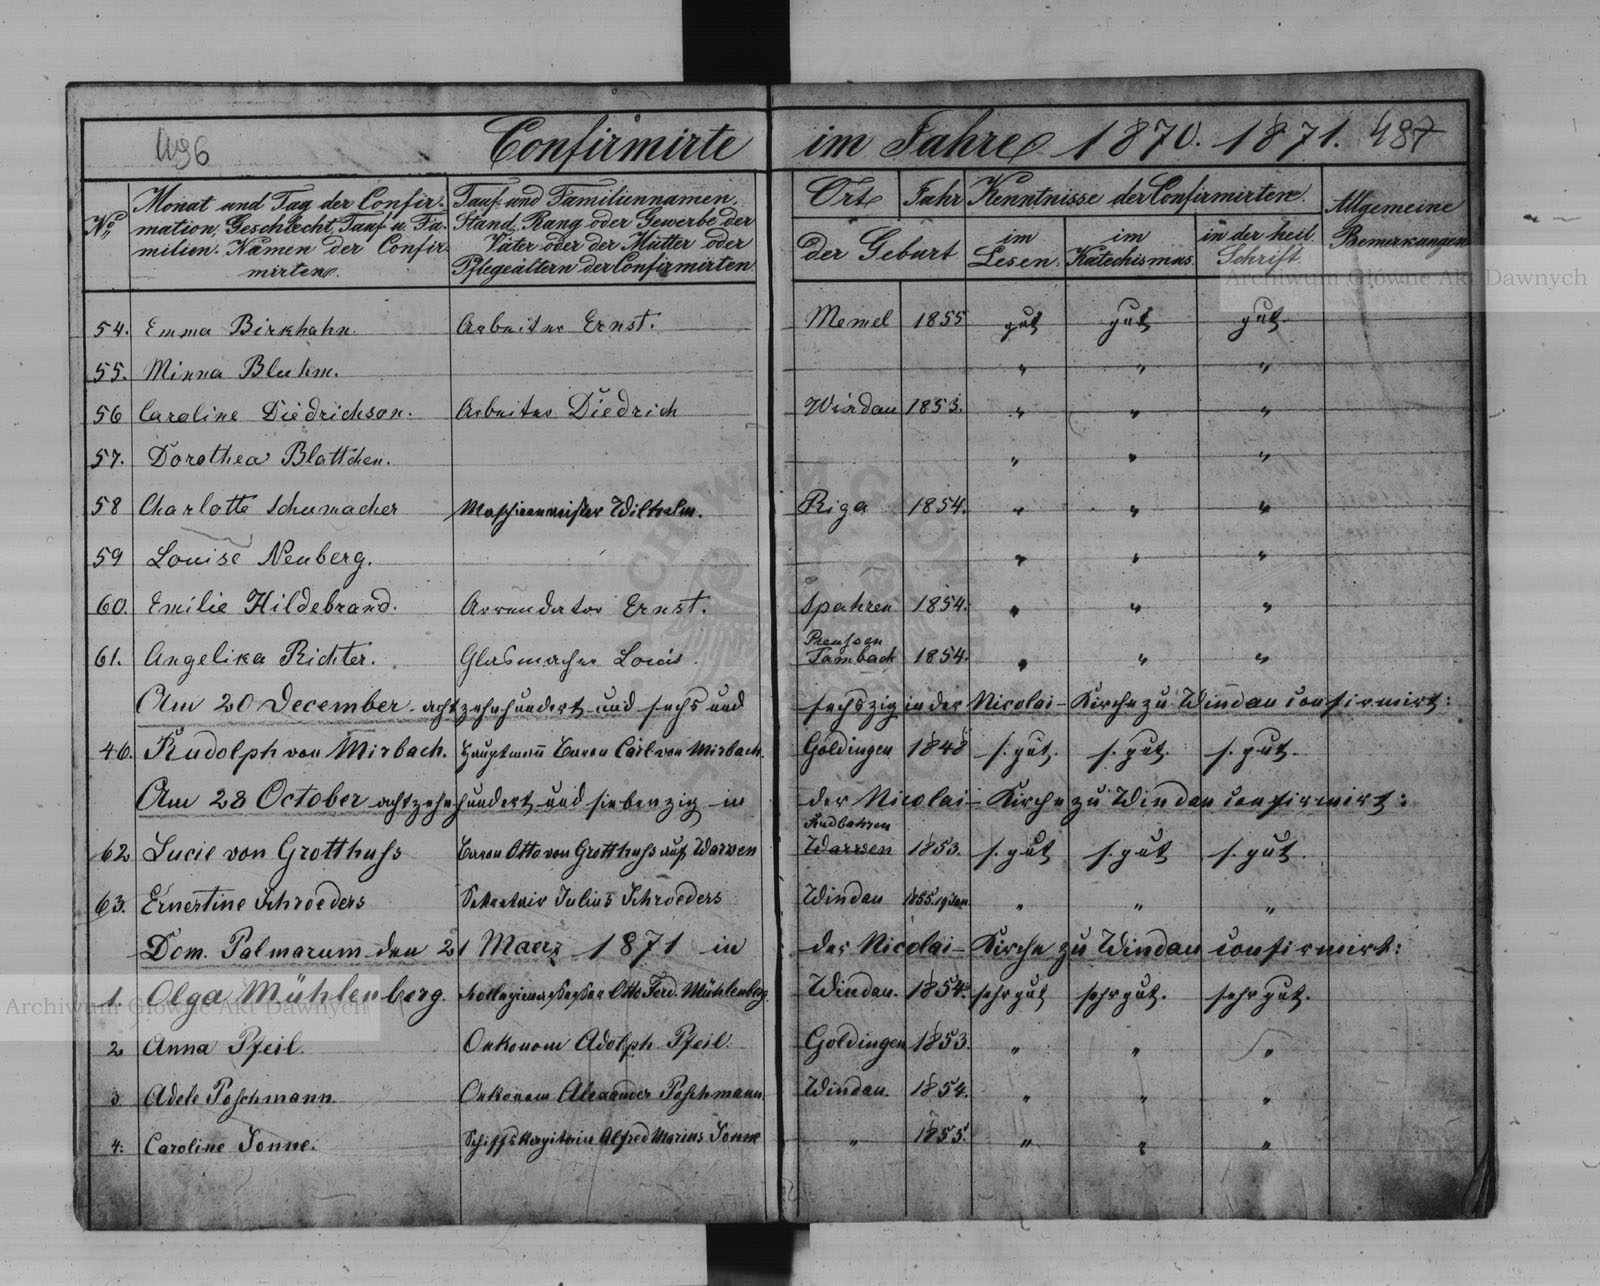 496 Confirmirte im Jahre 1870. 1871. 487
No. Monat und Tag der Confirmation, Geschlecht, Tauf u. Familien-Namen der Confirmirten.
Tauf- und Familiennamen, Stand, Rang oder Gewerbe der Väter oder der Mütter oder Pflegeältern der Confirmirten
Ort Jahr
der Geburt
Kenntnisse der Confirmirten.
im Lesen. im Katechismus. in der heil. Schrift.
Allgemeine Bemerkungen
54. Emma Birkhahn. Arbeiter Ernst. Memel 1855 gut gut gut
55. Minna Bluhm. " " "
56 Caroline Diedrichson. Arbeiter Diedrich Windau 1853. " " "
57. Dorothea Blattchen. " " "
58 Charlotte Schumacher Maschinenmeister Wilhelm. Riga 1854. " " "
59 Louise Neuberg. " " "
60. Emilie Hildebrand. Arrendator Ernst. Spahren 1854. " " "
61. Angelika Richter. Glasmacher Louis. Preussen Tambach 1854. " " "
Am 20 December achtzehnhundert und sechs und sechszig in der Nicolai-Kirche zu Windau confirmirt:
46. Rudolph von Mirbach. Hauptmann Baron Carl von Mirbach. Goldingen 1848 s. gut. s. gut. s. gut.
Am 28 October achtzehnhundert und siebenzig in der Nicolai-Kirche zu Windau confirmirt:
62 Lucie von Grotthuss Baron Otto von Grotthuss auf Warwen Rudbahren Warwen 1853. s. gut s. gut s. gut.
63. Ernestine Schroeders Sekretair Julius Schroeders Windau 1855. 19 Jan " " "
Dom. Palmarum den 21 Maerz 1871 in der Nicolai-Kirche zu Windau confirmirt:
1. Olga Mühlenberg. Kollegienassessor Otto Ferd. Mühlenberg Windau. 1854. sehr gut sehr gut. sehr gut.
2 Anna Pfeil. Oekonom Adolph Pfeil. Goldingen 1853. " " "
3. Adele Poschmann Oekonom Alexander Poschmann. Windau. 1854. " " "
4. Caroline Sonne. Schiffskapitain Alfred Marius Sonne " 1855. " " "
Archiwum Główne Akt Dawnych
Archiwum Główne Akt Dawnych